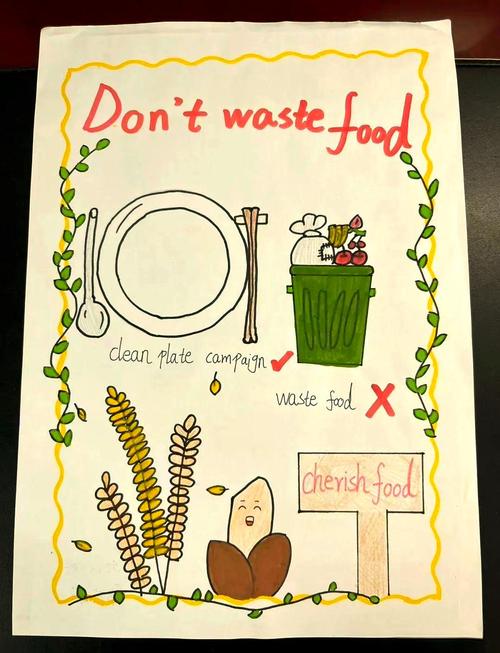 Don't waste food
clean plate campaign
waste food
cherish food